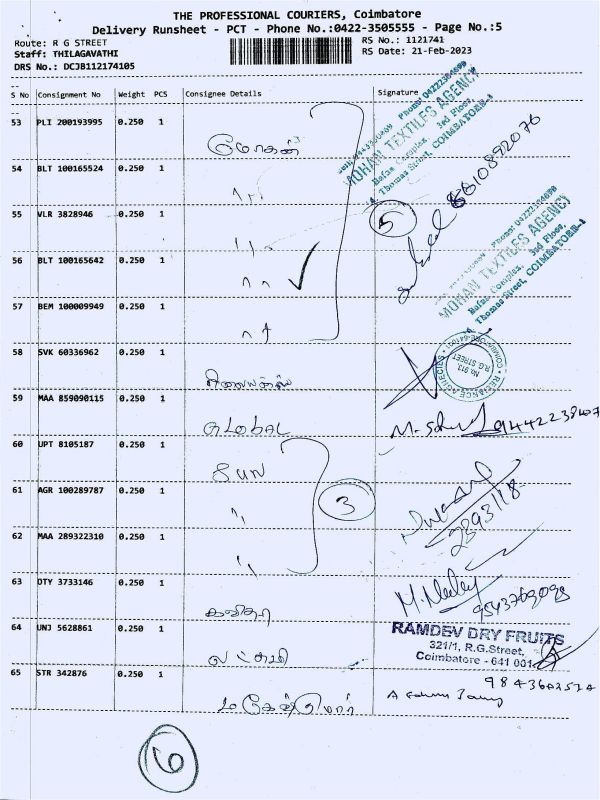 THE PROFESSIONAL COURIERS, Coimbatore
Delivery Runsheet - PCT - Phone No.:0422-3505555 - Page No.:5
Route: R G STREET
Staff: THILAGAVATHI
DRS No.: DCJB112174105
RS No.: 1121741
RS Date: 21-Feb-2023
S No Consignment No Weight PCS Consignee Details Signature
53 PLI 200193995 0.250 1 மோகன்
54 BLT 100165524 0.250 1 "
55 VLR 3828946 0.250 1 "
56 BLT 100165642 0.250 1 "
57 BEM 100009949 0.250 1 "
5
MOHAN TEXTILES AGENCY
Bafna Complex, 3rd Floor,
Thomas Street, COIMBATORE-1
8610892076
Phone: 04222304699
MOHAN TEXTILES AGENCY
Bafna Complex, 3rd Floor,
Thomas Street, COIMBATORE-1
58 SVK 60336962 0.250 1 ரிலையன்ஸ்
No. 913
R.G. STREET
59 MAA 859090115 0.250 1 GLobAL
60 UPT 8105187 0.250 1 SUN
61 AGR 100289787 0.250 1 "
62 MAA 289322310 0.250 1 "
3
63 DTY 3733146 0.250 1 கவிதா
64 UNJ 5628861 0.250 1 லட்சுமி
RAMDEV DRY FRUITS
321/1, R.G.Street,
Coimbatore - 641 001
65 STR 342876 0.250 1
6